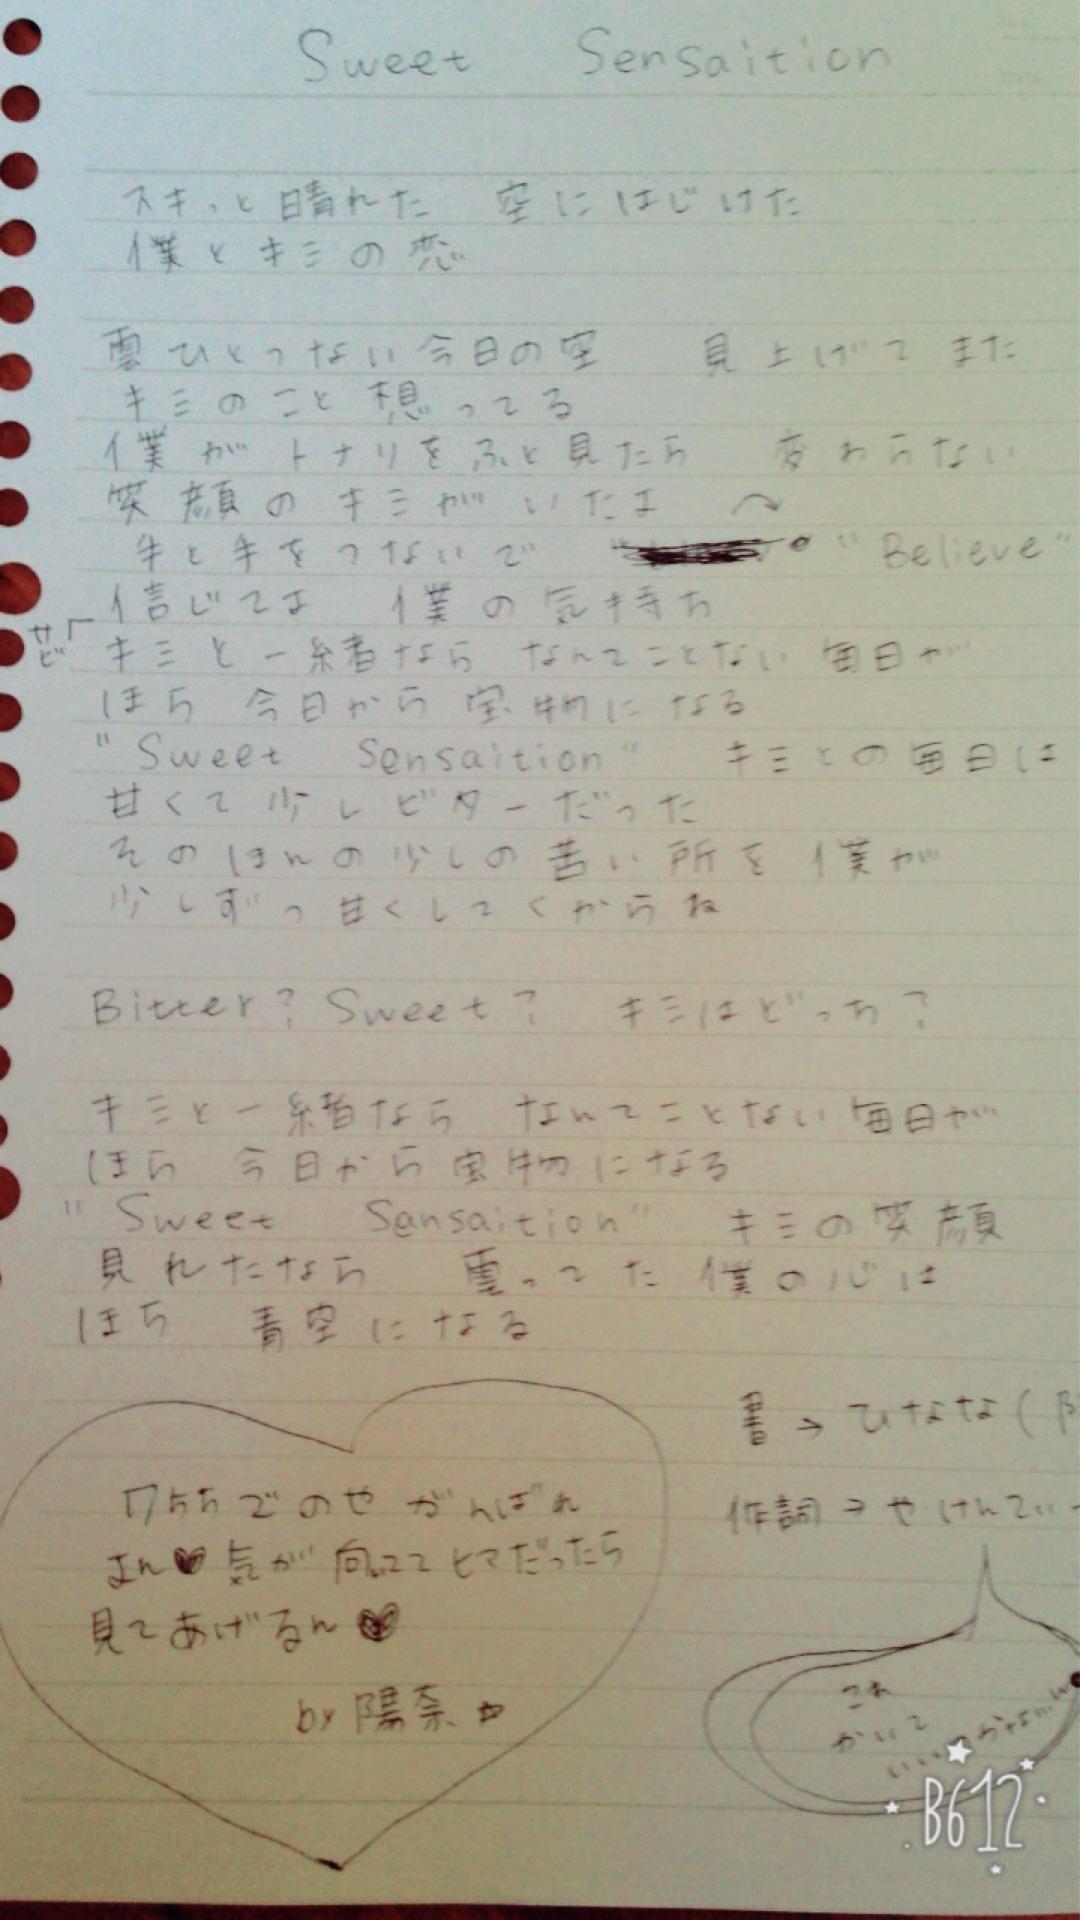 Sweet Sensaition
スキっと晴れた 空にはじけた
僕とキミの恋
雲ひとつない今日の空 見上げてまた
キミのこと想ってる
僕がトナリをふと見たら 変わらない
笑顔のキミがいたよ
手と手をつないで "Believe"
信じてよ 僕の気持ち
サビ「
キミと一緒なら なんてことない毎日が
ほら 今日から宝物になる
"Sweet Sensaition" キミとの毎日は
甘くて少しビターだった
そのほんの少しの苦い所を僕が
少しずつ甘くしてくからね
Bitter? Sweet? キミはどっち?
キミと一緒なら なんてことない毎日が
ほら 今日から宝物になる
"Sweet Sansaition" キミの笑顔
見れたなら 曇ってた僕の心は
ほら 青空になる
書→ひなな(
作詞→やけんてぃー
でのやがんばれ
よん♥気が向いててヒマだったら
見てあげるん♥
by陽奈
これ
かいて
いいのかな…
B612